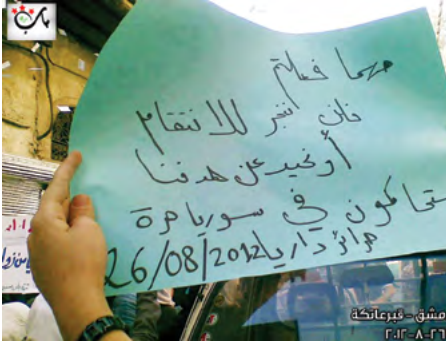 مهما فعلتم
فلن ننجر للانتقام
أو نحيد عن هدفنا
ستحاكمون في سوريا حرة
حرائر داريا 26/08/2012
دمشق - قبرعاتكة
٢٠١٢-٨-٢٦